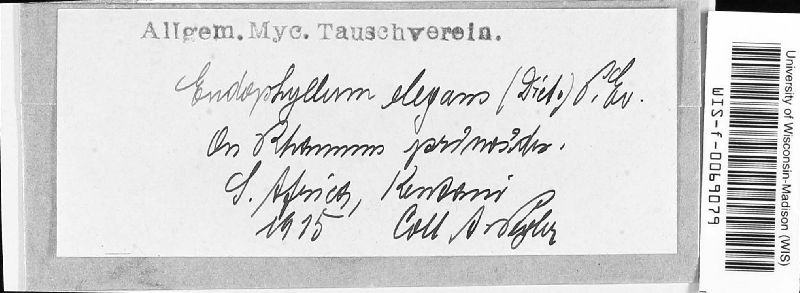 Allgem. Myc. Tauschverein.
Endophyllum elegans (Diet.) P. Ev.
On Rhamnus prinoides.
S. Africa, Kentani
1915 Coll A. Pegler
University of Wisconsin-Madison (WIS)
WIS-f-0069079